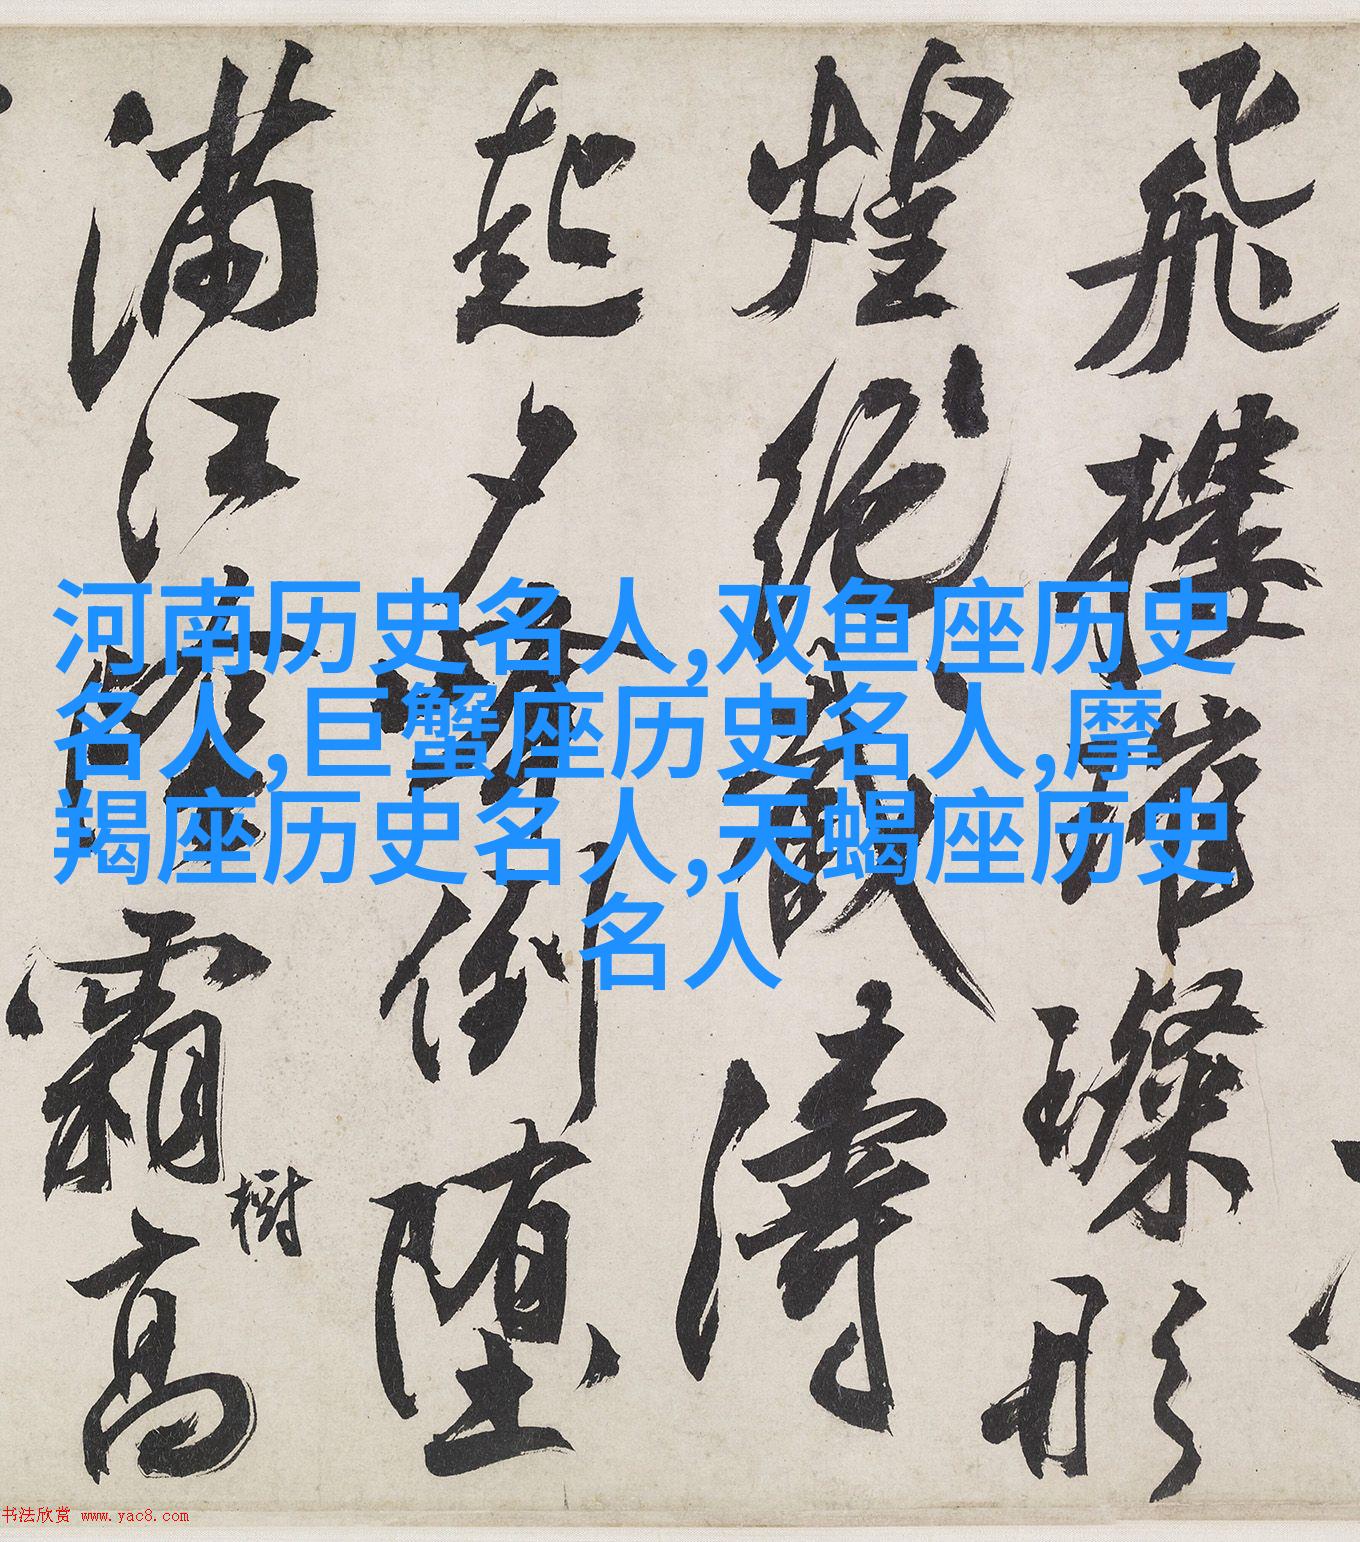 飛樓璀璨彤
煌絶濤
起夕倒墮
滿江霜高
樹
河南历史名人,双鱼座历史
名人,巨蟹座历史名人,摩
羯座历史名人,天蝎座历史
名人
书法欣赏 www.yac8.com